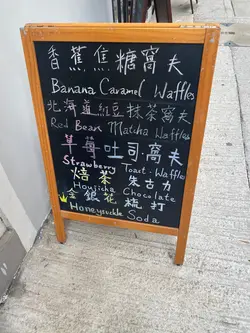 香蕉焦糖窩夫
Banana Caramel Waffles
北海道紅豆抹茶窩夫
Red Bean Matcha Waffles
草莓吐司窩夫
Strawberry Toast-Waffles
焙茶朱古力
Houjicha Chocolate
金銀花梳打
Honeysuckle Soda